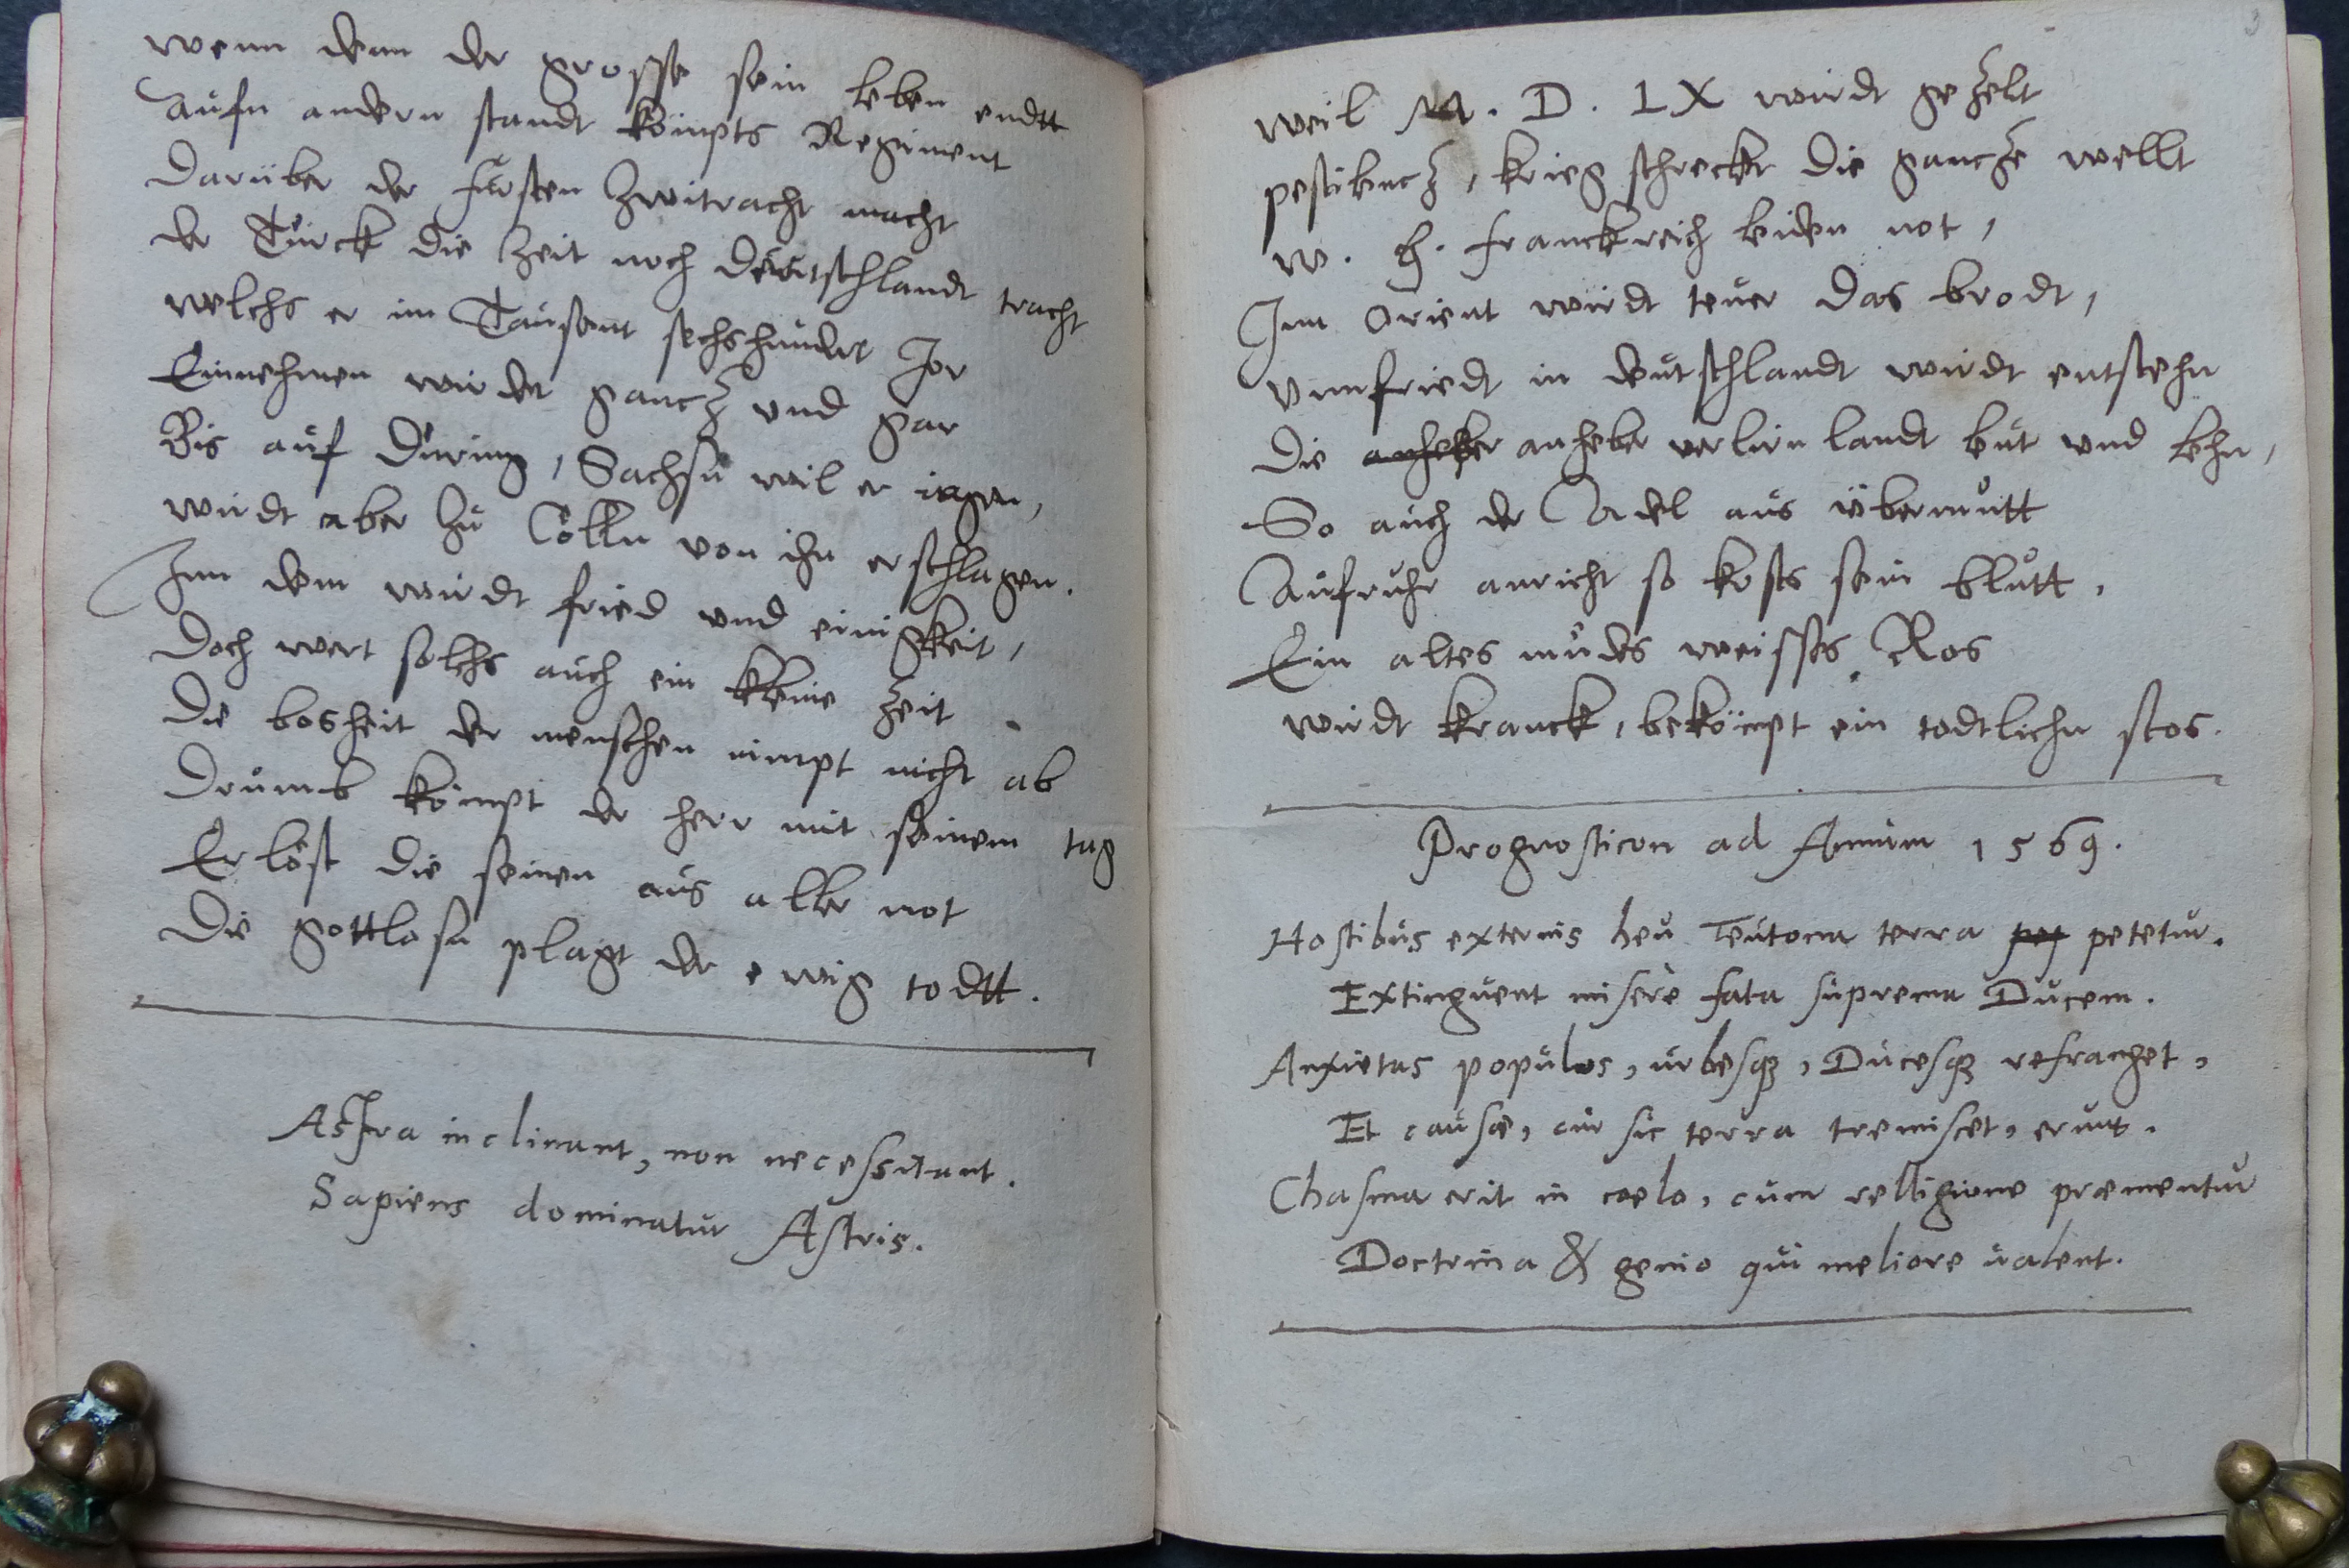 wenn denn der grosse sein leben endtt
aufn andern standt kömpts Regiment
Darüber der fürsten Zwitracht macht
der Türck die Zeit noch deutschlandt tracht
welchs er im Tausent sechshundert Jor
Einnehmen wirdet gancz und gar
Bis auf During, Sachsn wil er iagen,
wirdt aber zu Cölln von ihn erschlagen.
Inn dem wirdt fried und einigkeit,
Doch wert solchs auch ein kleine zeit.
Die bosheit der menschen nimpt nicht ab
Drumb kömpt der herr mit seinem tag
Erlöst die seinen aus aller not
Die gottlosn plagt der ewig todtt.
Astra inclinant, non necessitant.
Sapiens dominatur Astris.
3
weil M. D. LX wirdt gezelt
pestilencz, krieg schrecket die gancze wellt
w. h. franckreich leiden not,
Inn Orient wirdt teuer das brodt,
Unnfriedt in deutschlandt wirdt entstehn
Die anheber anheber verlirn landt leut und lehn,
So auch der Adel aus übermutt
Aufruhr anricht so kosts sein blutt.
Ein altes mudes weisses Ros
wirdt kranck, bekömpt ein todtlichn stos.
Prognosticon ad Annum 1569.
Hostibus externis heu Teutona terra pet petetur.
Extinguent miserè fata suprema Ducem.
Anxietas populos, urbesq;, Ducesq; refranget,
Et causæ, cur sic terra tremiscet, erunt.
Chasma erit in coelo, cum relligione præmentur
Doctrina & genio qui meliore ualent.